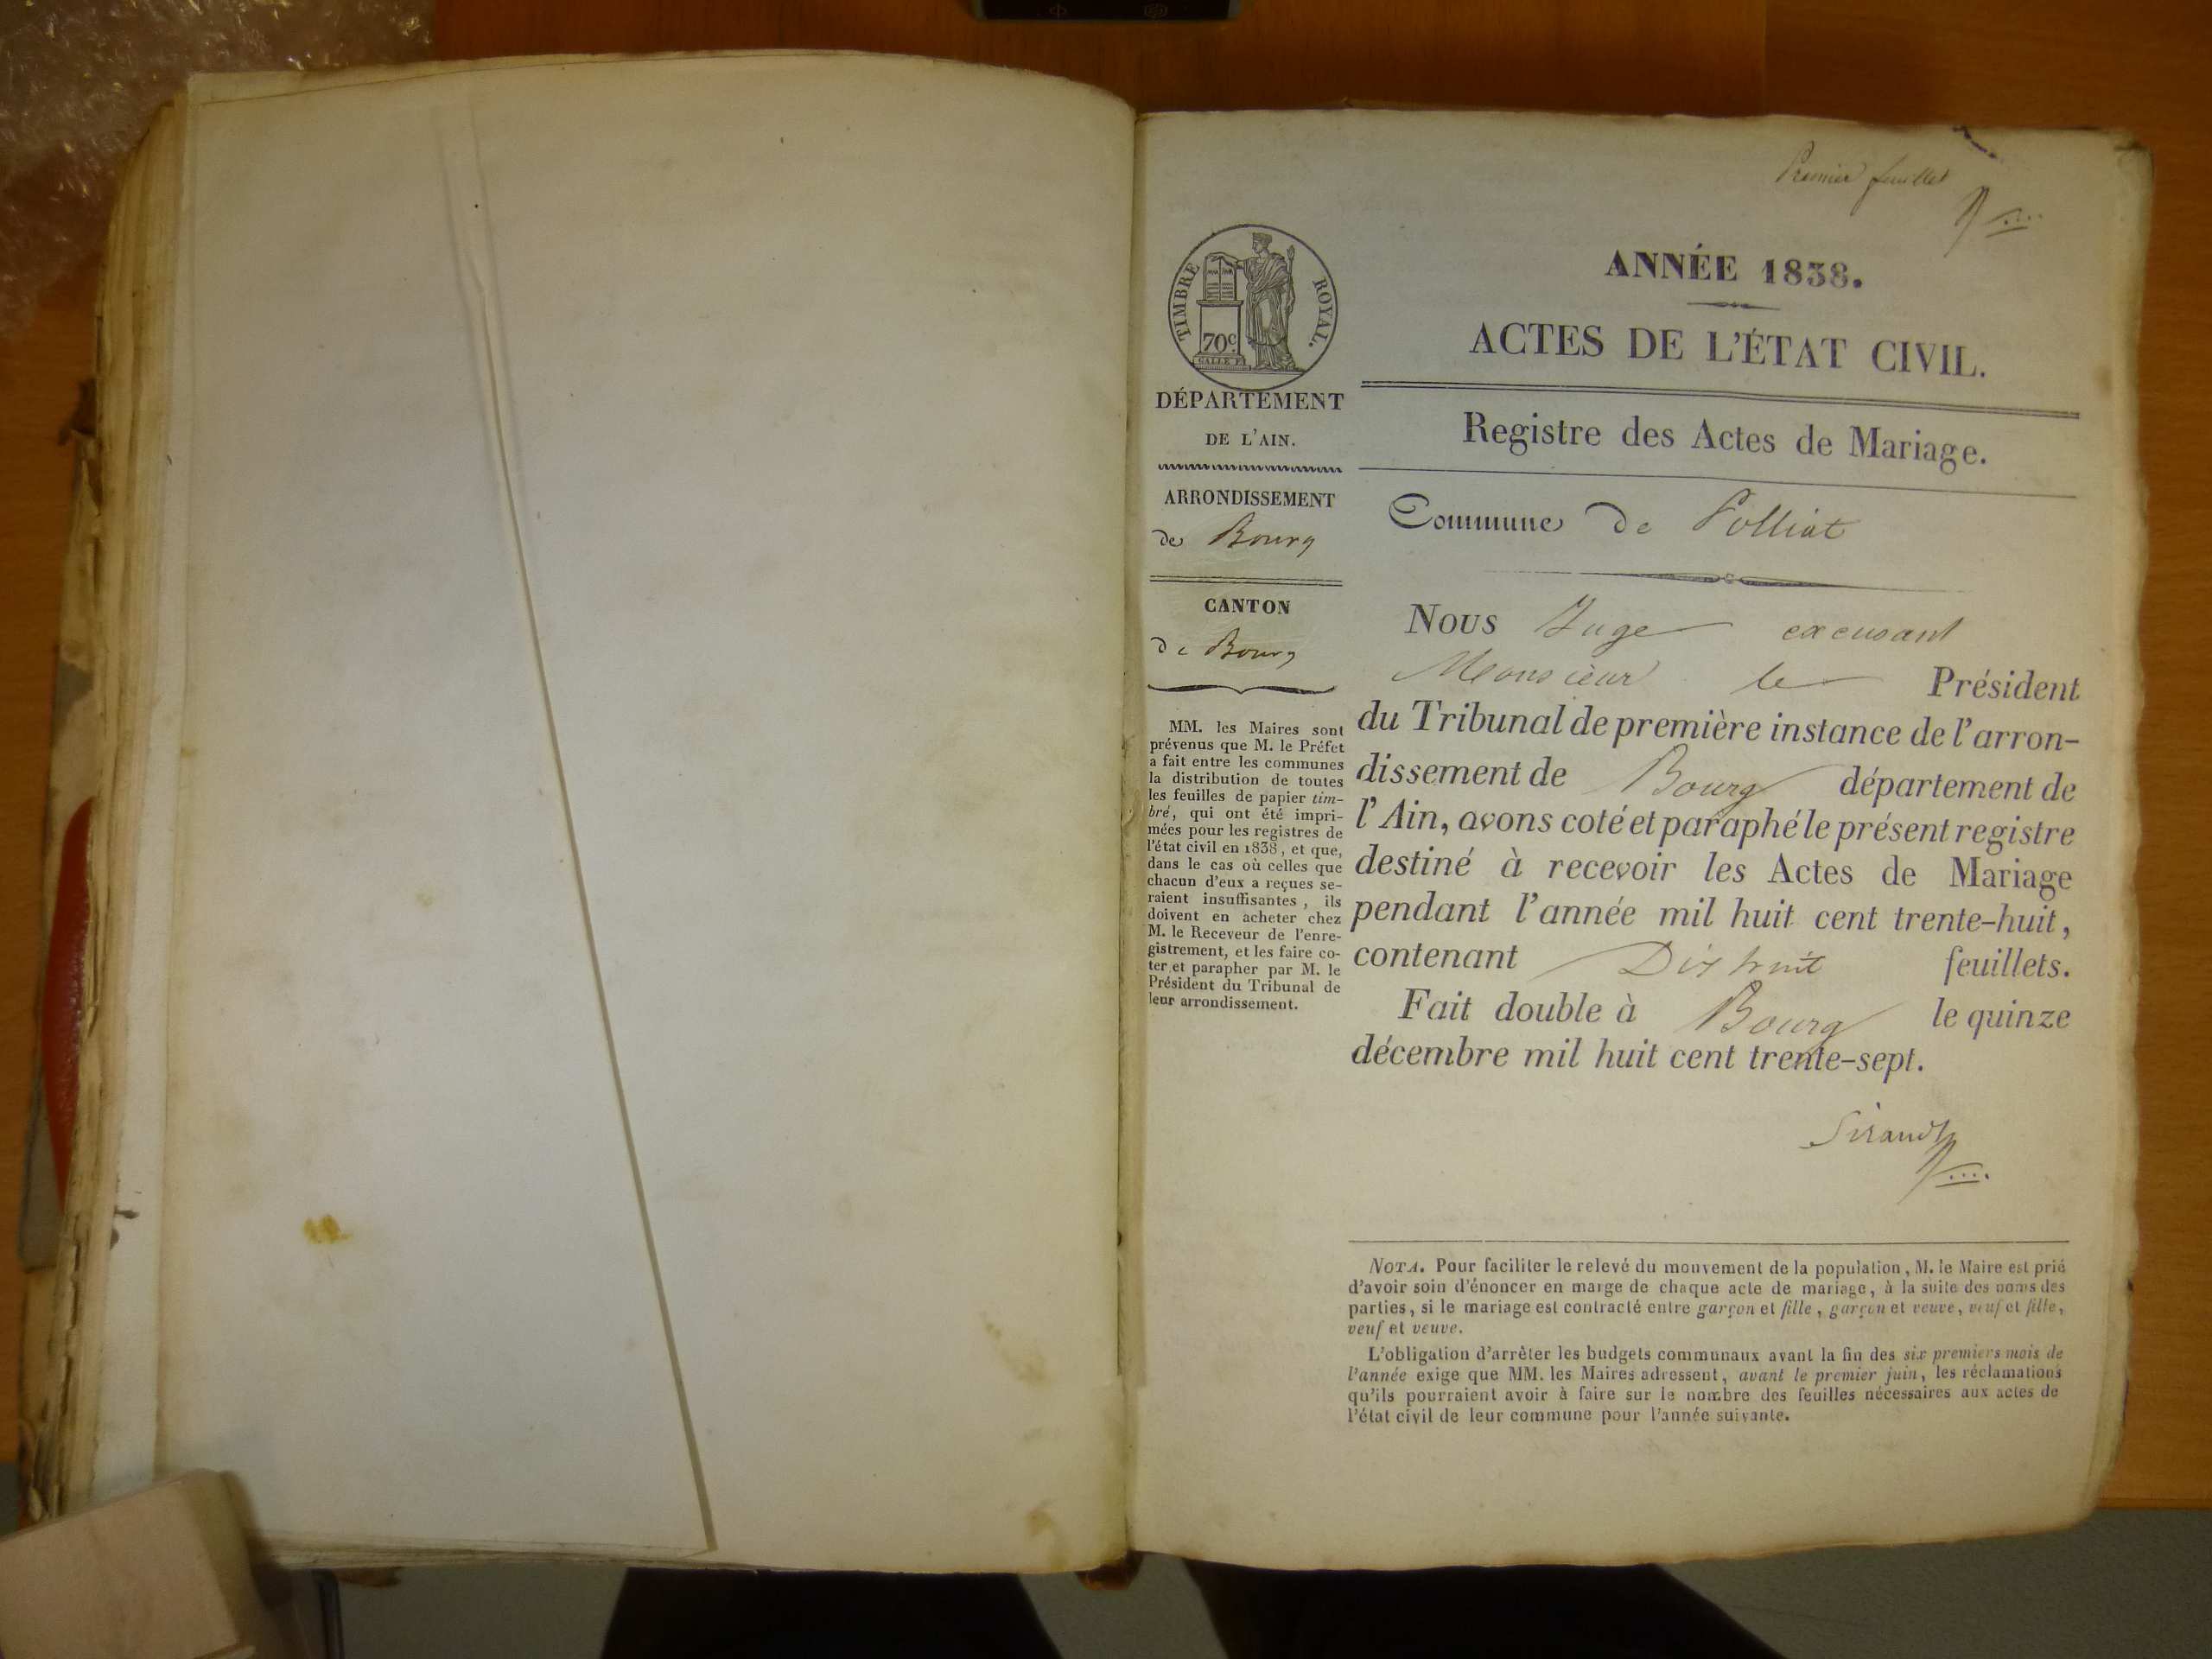 Premier feuillet
TIMBRE ROYAL.
70c.
DÉPARTEMENT
DE L'AIN.
ARRONDISSEMENT
de Bourg
CANTON
de Bourg
MM. les Maires sont
prévenus que M. le Préfet
a fait entre les communes
la distribution de toutes
les feuilles de papier tim-
bré, qui ont été impri-
mées pour les registres de
l'état civil en 1838, et que,
dans le cas où celles que
chacun d'eux a reçues se-
raient insuffisantes, ils
doivent en acheter chez
M. le Receveur de l'enre-
gistrement, et les faire co-
ter et parapher par M. le
Président du Tribunal de
leur arrondissement.
ANNÉE 1838.
ACTES DE L'ÉTAT CIVIL.
Registre des Actes de Mariage.
Commune de Polliat
Nous Juge excusant
Monsieur le Président
du Tribunal de première instance de l'arron-
dissement de Bourg département de
l'Ain, avons coté et paraphé le présent registre
destiné à recevoir les Actes de Mariage
pendant l'année mil huit cent trente-huit,
contenant Dix huit feuillets.
Fait double à Bourg le quinze
décembre mil huit cent trente-sept.
Sirand
NOTA. Pour faciliter le relevé du mouvement de la population, M. le Maire est prié
d'avoir soin d'énoncer en marge de chaque acte de mariage, à la suite des noms des
parties, si le mariage est contracté entre garçon et fille, garçon et veuve, veuf et fille,
veuf et veuve.
L'obligation d'arrêter les budgets communaux avant la fin des six premiers mois de
l'année exige que MM. les Maires adressent, avant le premier juin, les réclamations
qu'ils pourraient avoir à faire sur le nombre des feuilles nécessaires aux actes de
l'état civil de leur commune pour l'année suivante.